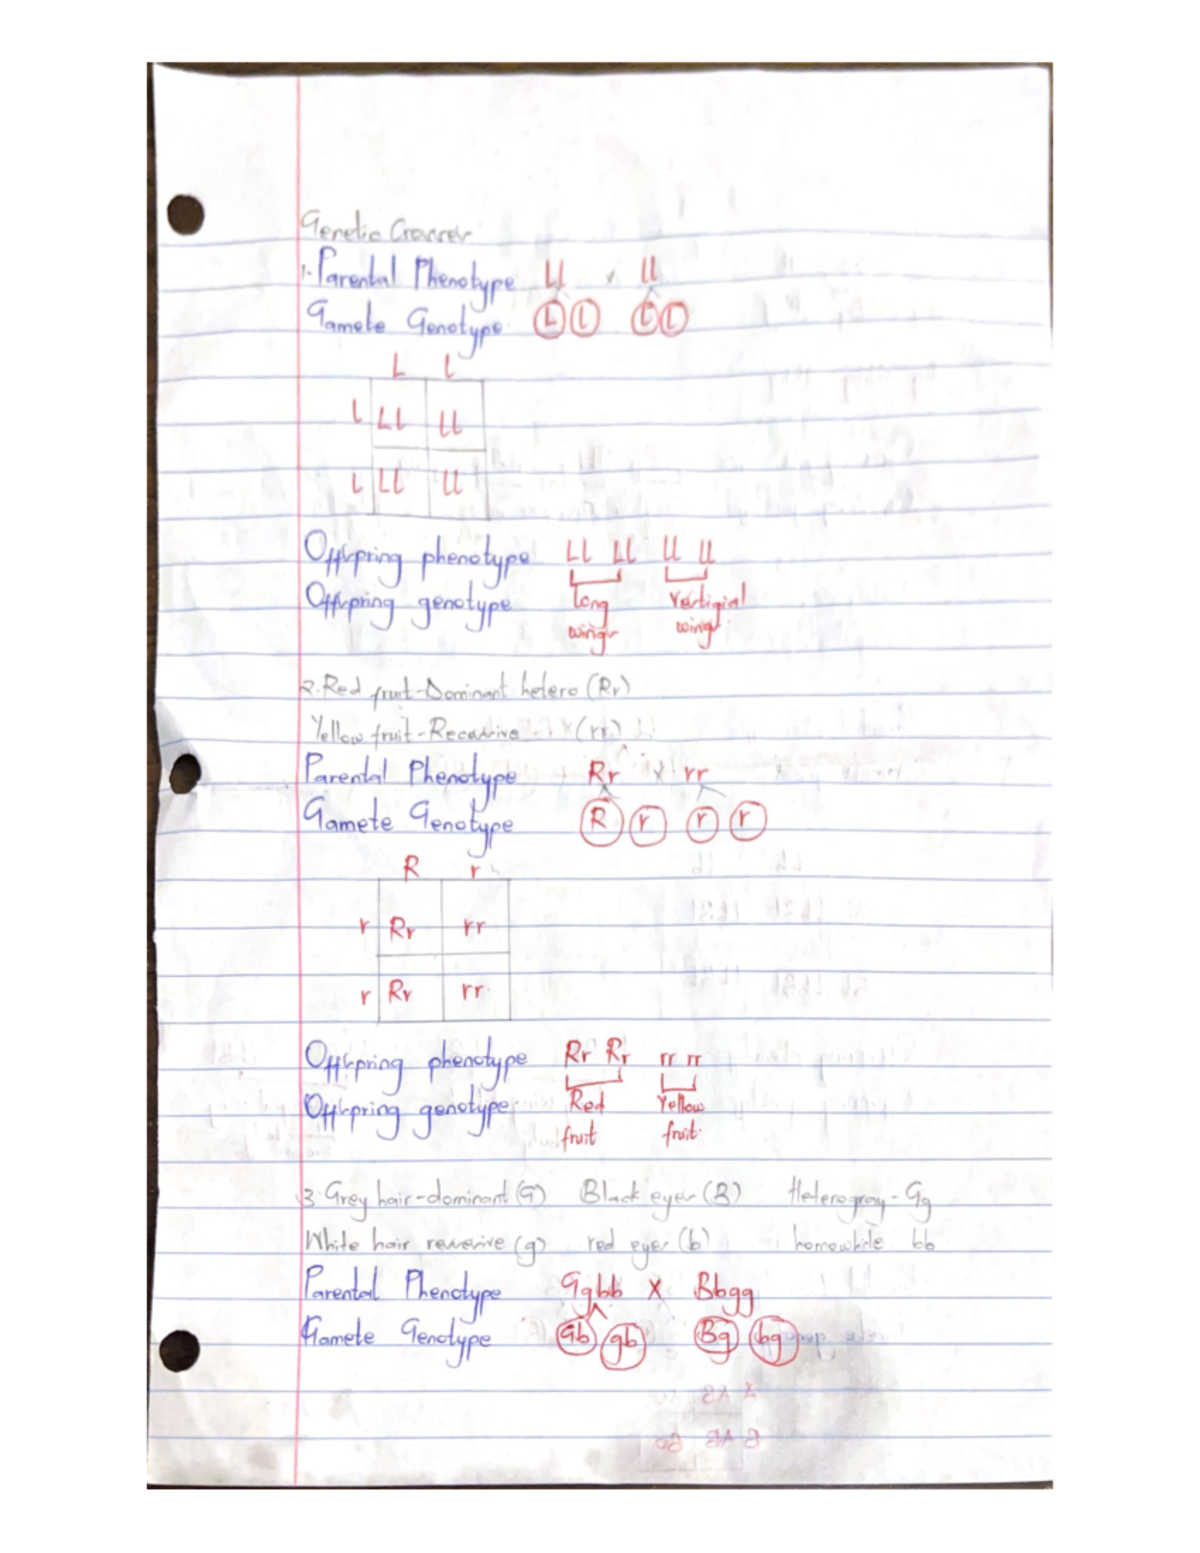 Genetic Crosses
1. Parental Phenotype Ll x ll
Gamete Genotype L l l l
L l
l Ll ll
l Ll ll
Offspring phenotype Ll Ll ll ll
Offspring genotype long vestigial
wings wings
2. Red fruit-Dominant hetero (Rr)
Yellow fruit-Recessive (rr)
Parental Phenotype Rr x rr
Gamete Genotype R r r r
R r
r Rr rr
r Rr rr
Offspring phenotype Rr Rr rr rr
Offspring genotype Red Yellow
fruit fruit
3. Grey hair-dominant (G) Black eyes (B) Heterogray - Gg
White hair recessive (g) red eyes (b) homowhite bb
Parental Phenotype Ggbb x Bbgg
Gamete Genotype Gb gb Bg bg